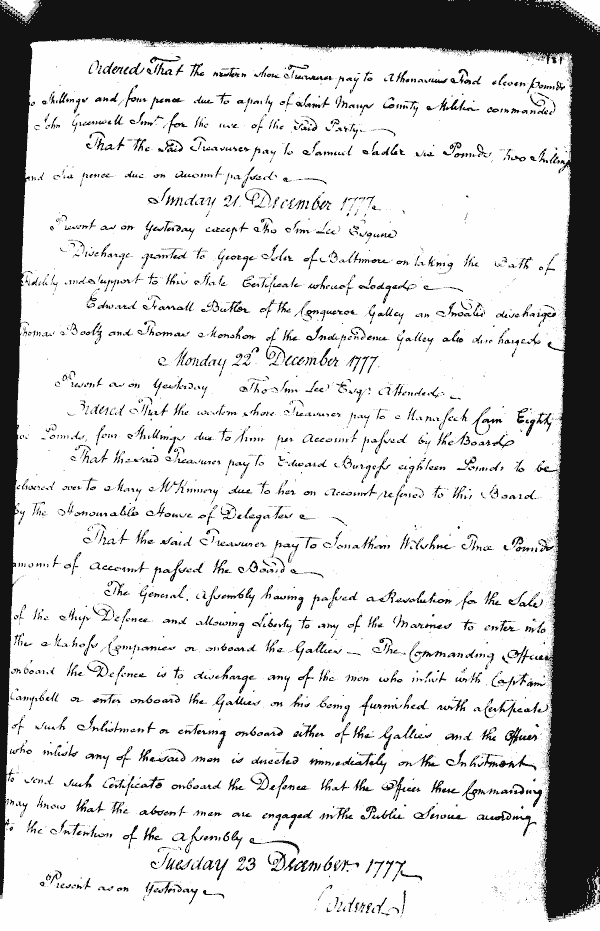 181
Ordered That the western shore Treasurer pay to Athanasius Ford eleven Pounds
Shillings and four pence due to a party of Saint Marys County Militia commanded
John Greenwell Junr for the use of the said Party
That the said Treasurer pay to Samuel Sadler six Pounds, two Shillings
and six pence due on account passed
Sunday 21 December 1777
Present as on Yesterday except Tho Sim Lee Esquire
Discharge granted to George Isler of Baltimore on taking the Oath of
Fidelity and support to this State Certificate whereof Lodged
Edward Farrall Butler of the Conqueror Galley an Invalid discharged
Thomas Bootz and Thomas Monohon of the Independence Galley also discharged
Monday 22d December 1777
Present as on Yesterday Tho Sim Lee Esqr Attended
Ordered That the western shore Treasurer pay to Manasseh Cain Eighty
Pounds, four Shillings due to him per Account passed by the Board
That the said Treasurer pay to Edward Burgess eighteen Pounds to be
delivered over to Mary McKinnery due to her on Account refered to this Board
by the Honourable House of Delegates
That the said Treasurer pay to Jonathan Wilshire Three Pounds
amount of Account passed the Board
The General Assembly having passed a Resolution for the Sale
of the Ship Defence and allowing Liberty to any of the Marines to enter into
the Matross Companies or onboard the Gallies — The Commanding Officer
onboard the Defence is to discharge any of the men who inlist with Captain
Campbell or enter onboard the Gallies on his being furnished with a Certificate
of such Inlistment or entering onboard either of the Gallies and the Officer
who inlists any of the said men is directed immediately on the Inlistment
to send such Certificate onboard the Defence that the Officer there Commanding
may know that the absent men are engaged in the Public Service according
to the Intention of the Assembly
Tuesday 23 December 1777
Present as on Yesterday
(Ordered)